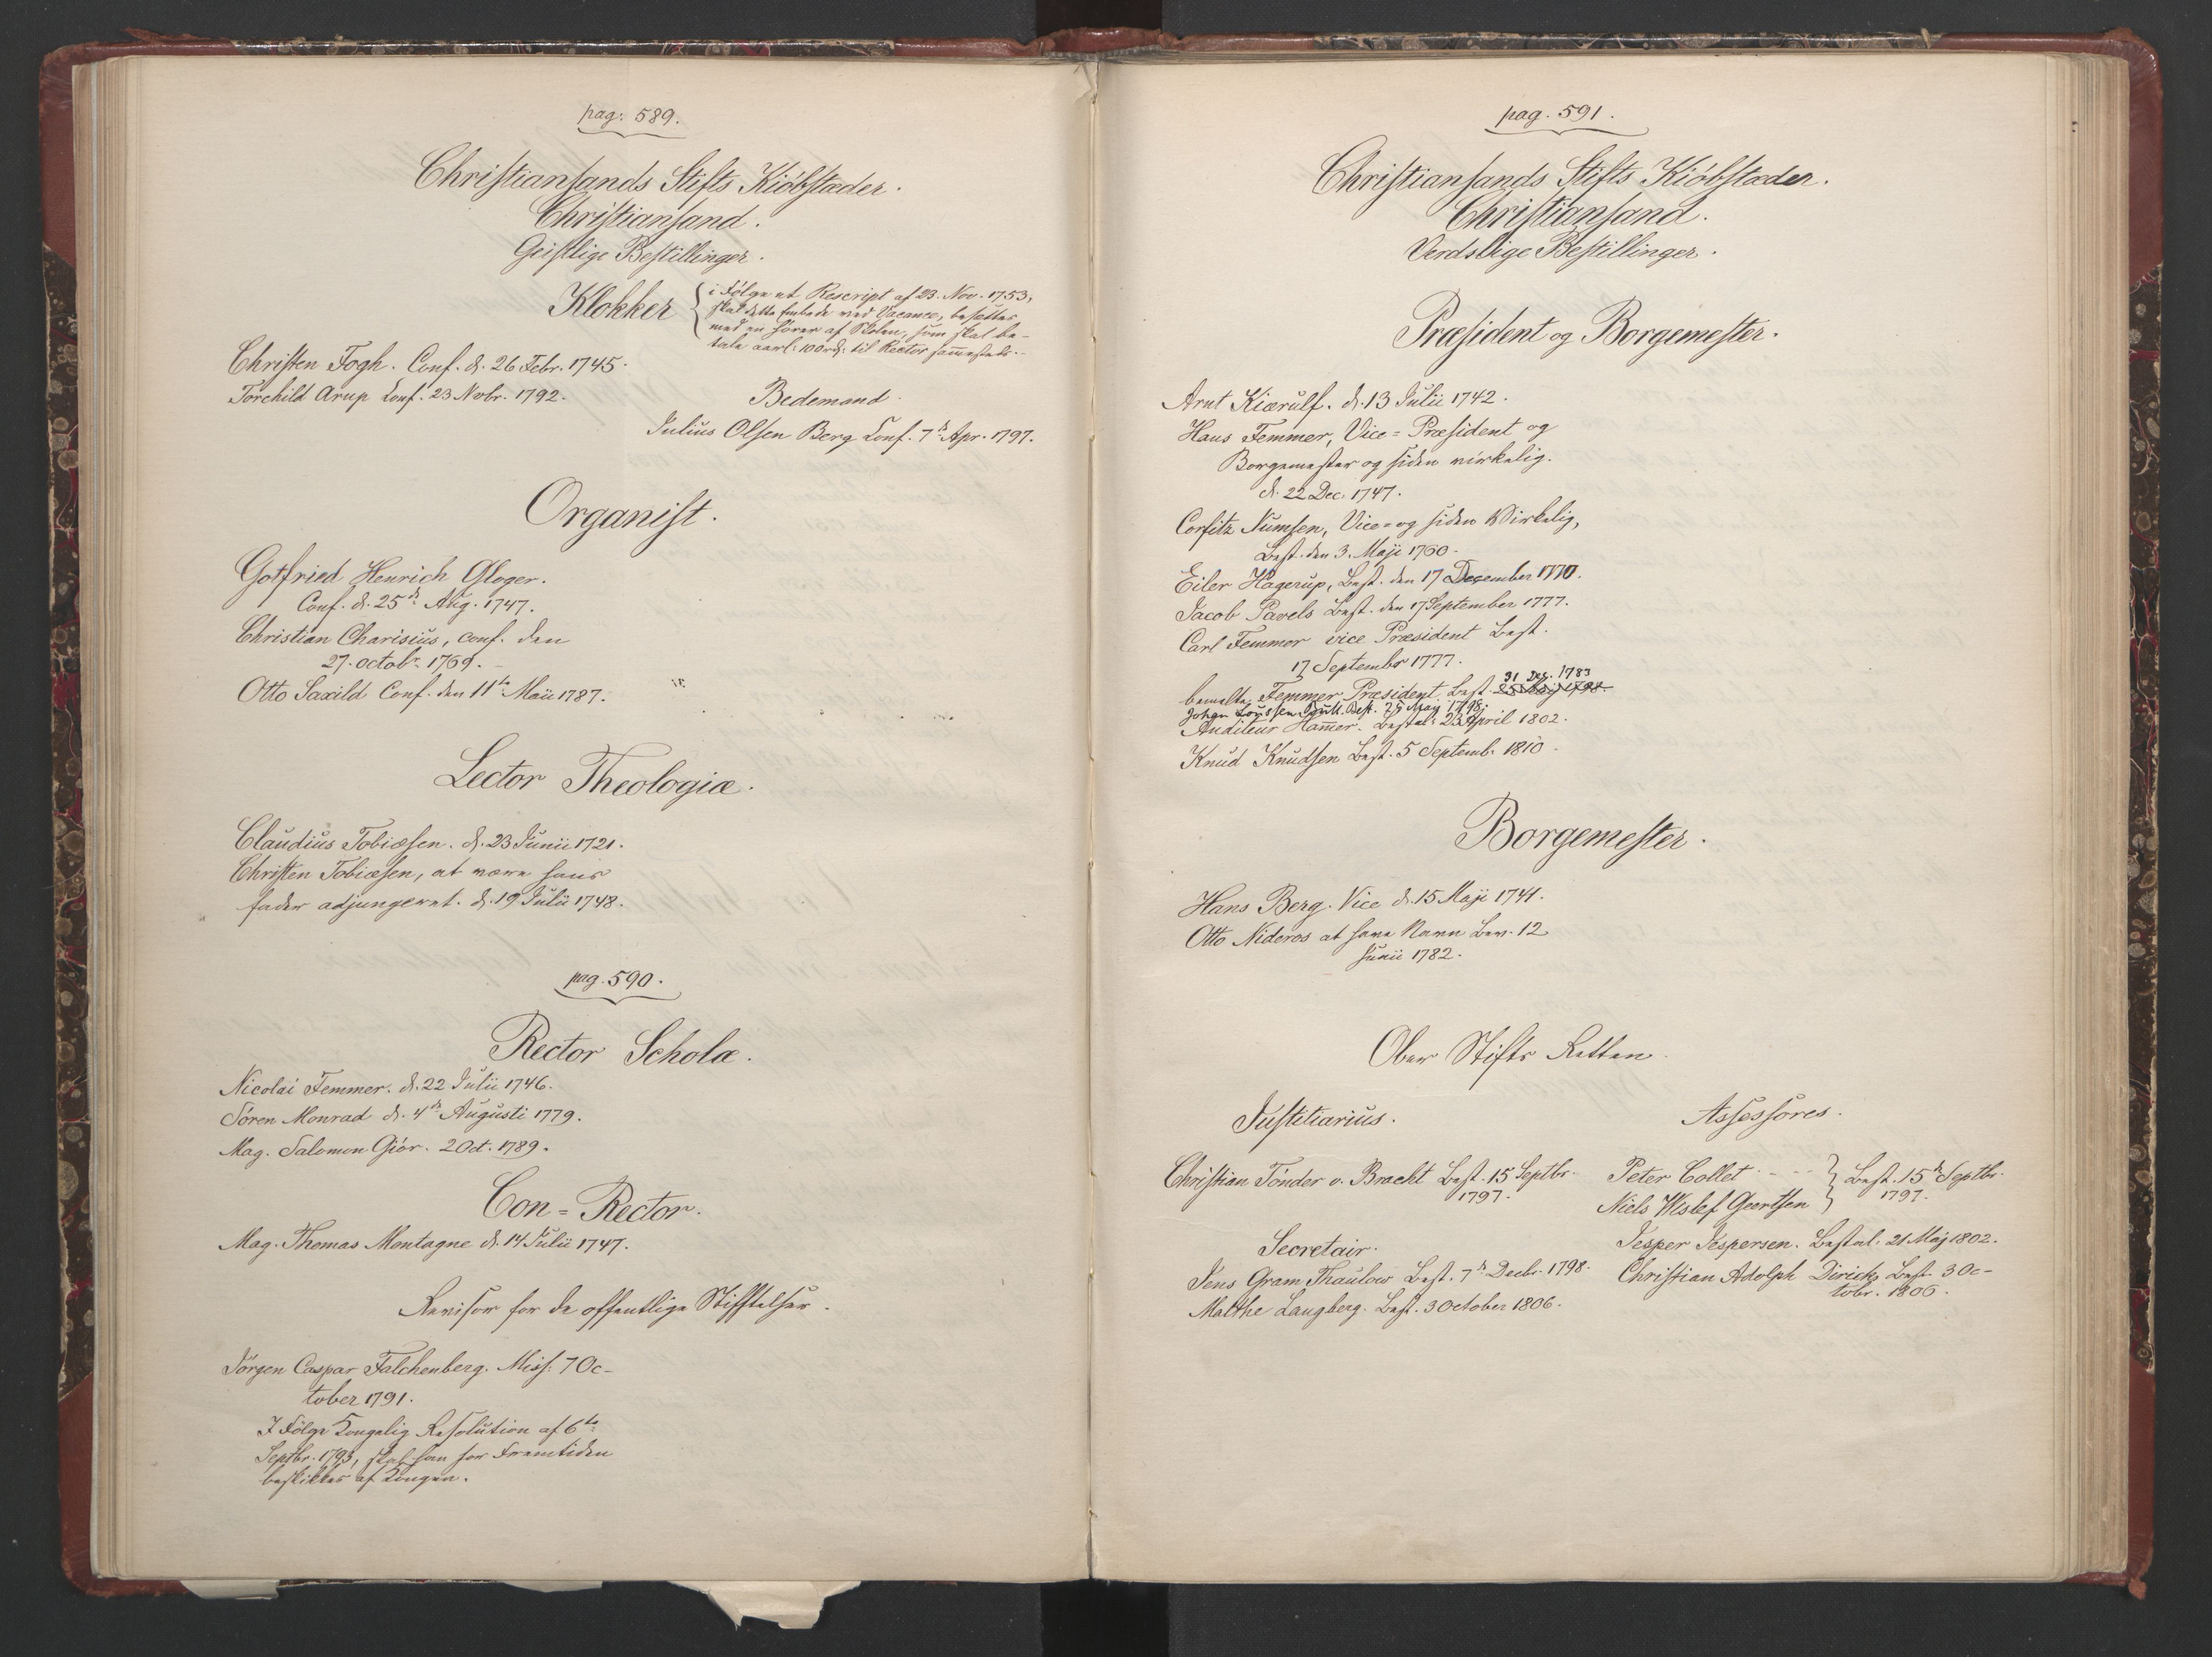 pag. 589.
Christiansands Stifts Kiöbstæder.
Christiansand.
Geistlige Bestillinger.
Klokker
i Følge et Rescript af 23. Nov. 1753,
skal dette Embede ved Vacance, besættes
med en Hører af Skolen, som skal be-
tale aarl: 100 rd: til Rector sammesteds.
Christen Fogh. Conf. d. 26 Febr. 1745.
Torchild Arup Conf. 23 Novbr. 1792.
Bedemand.
Julius Olsen Berg Conf. 7de Apr. 1797.
Organist.
Gotfried Henrich Gloger.
Conf. d. 25de Aug. 1747.
Christian Charisius, conf. den
27. octobr. 1769.
Otto Saxild Conf. den 11te Maii 1787.
Lector Theologiæ.
Claudius Tobiæsen. d. 23 Junii 1721.
Christen Tobiæsen, at være hans
fader adjungeret. d. 19 Julii 1748.
pag. 590.
Rector Scholæ.
Nicolai Femmer. d. 22 Julii 1746.
Sören Monrad d. 4de Augusti 1779.
Mag. Salomon Giör. 2 Oct. 1789.
Con=Rector.
Mag. Thomas Montagne d. 14 Julii 1747.
Revisor for de offentlige Stifftelser.
Jörgen Caspar Falchenberg. Miss. 7 Oc-
tober 1791.
I Følge Kongelig Resolution af 6te
Septbr. 1793, skal han for Fremtiden
beskikkes af Kongen.
pag. 591.
Christiansands Stifts Kiöbstæder.
Christiansand.
Verdslige Bestillinger.
Præsident og Borgemester.
Arnt Kiærulf. d. 13 Julii 1742.
Hans Femmer, Vice=Præsident og
Borgemester og siden virkelig.
d. 22 Dec. 1747.
Corfitz Numsen, Vice= og siden Wirkelig,
Best. den 3. Maji 1760.
Eiler Hagerup, Best. den 17 December 1770.
Jacob Pavels Best. den 17 September 1777.
Carl Femmer vice Præsident Best.
17 Septembr 1777.
bemelte Femmer Præsident. Best. 31 Dez. 1783
Johan Bull. Best. 25 May 1798.
Auditeur Hammer. Bestal: 23 April 1802.
Knud Knudsen Best. 5 Septemb. 1810.
Borgemester.
Hans Berg. Vice d. 15 Maji 1741.
Otto Nideros at have Navn Bev. 12
Junii 1782.
Ober Stifts Retten.
Justitiarius.
Christian Tönder v. Bracht Best. 15 Septbr.
1797.
Secretair.
Jens Gram Thaulow Best. 7de Decbr. 1798.
Malthe Langberg. Best. 3 October 1806.
Assessores.
Peter Collet
Niels Wislef Geertsen
Best. 15de Septbr.
1797.
Jesper Jespersen. Bestal. 21 Maj 1802.
Christian Adolph Diricks Best. 3 Oc-
tobr. 1806.